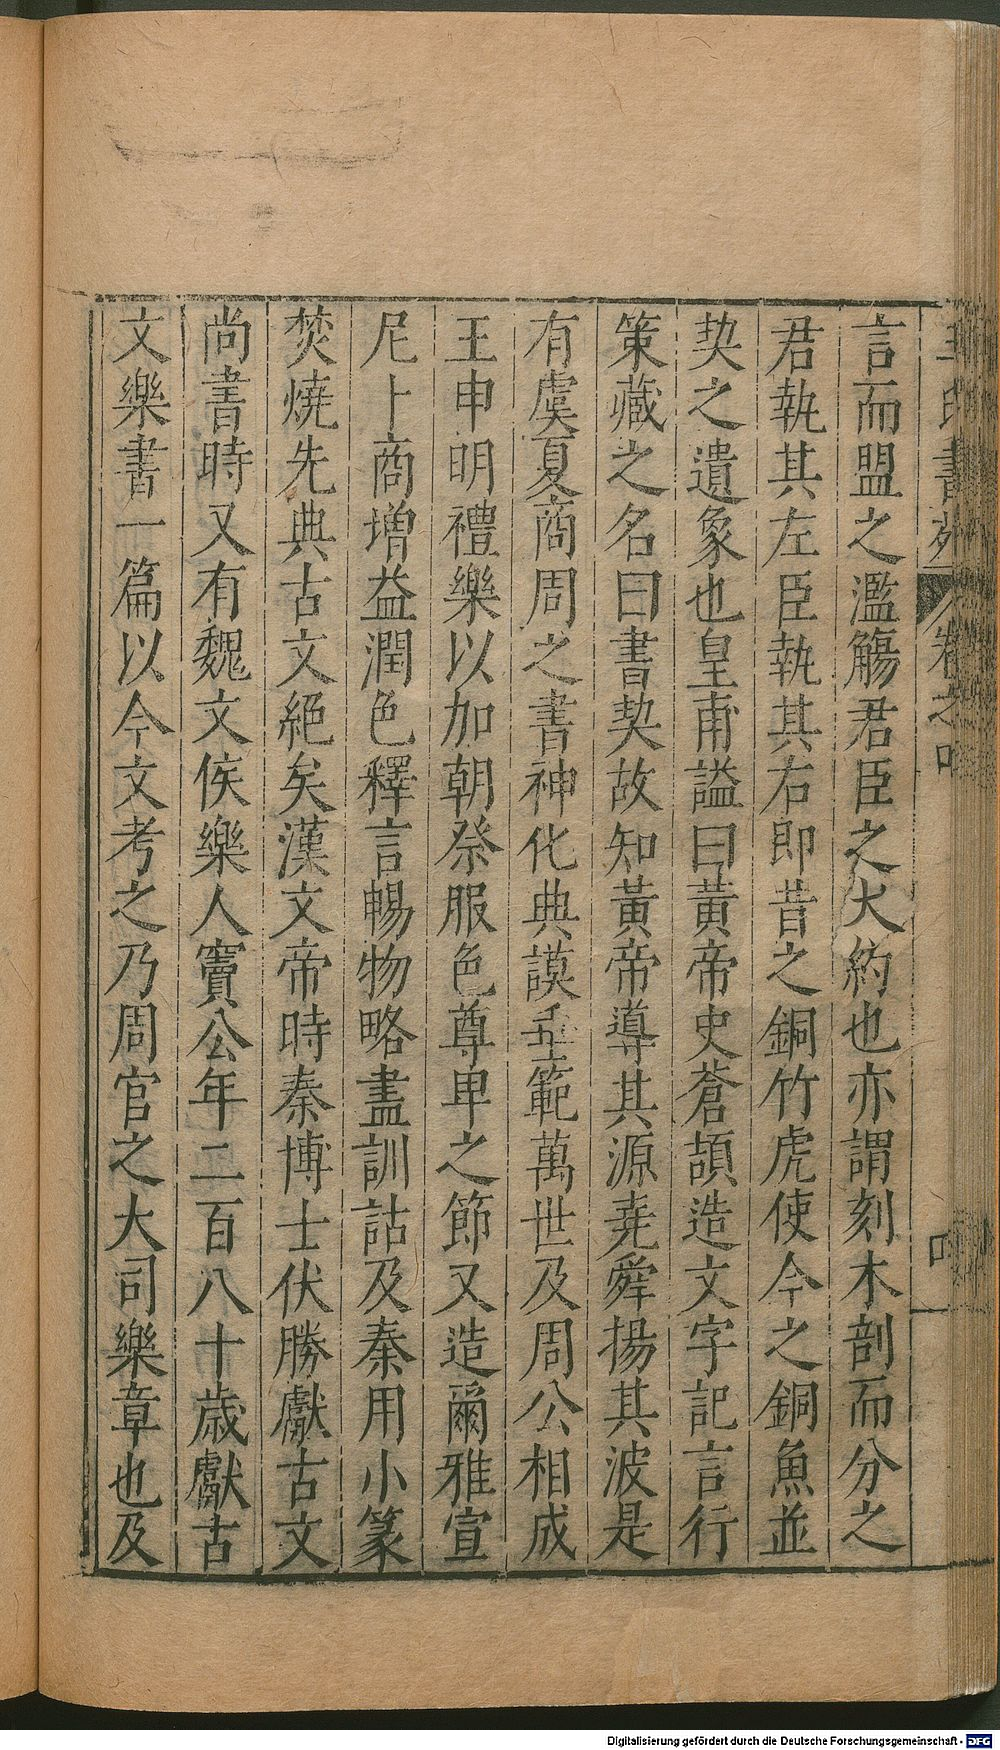 王氏書苑 卷之四 四
言而盟之濫觴君臣之大約也亦謂刻木剖而分之
君執其左臣執其右即昔之銅竹虎使今之銅魚並
契之遺象也皇甫謐曰黃帝史蒼頡造文字記言行
策藏之名曰書契故知黃帝導其源堯舜揚其波是
有虞夏商周之書神化典謨垂範萬世及周公相成
王申明禮樂以加朝祭服色尊卑之節又造爾雅宣
尼卜商增益潤色釋言暢物略盡訓詁及秦用小篆
焚燒先典古文絕矣漢文帝時秦博士伏勝獻古文
尚書時又有魏文侯樂人竇公年二百八十歲獻古
文樂書一篇以今文考之乃周官之大司樂章也及
Digitalisierung gefördert durch die Deutsche Forschungsgemeinschaft - DFG